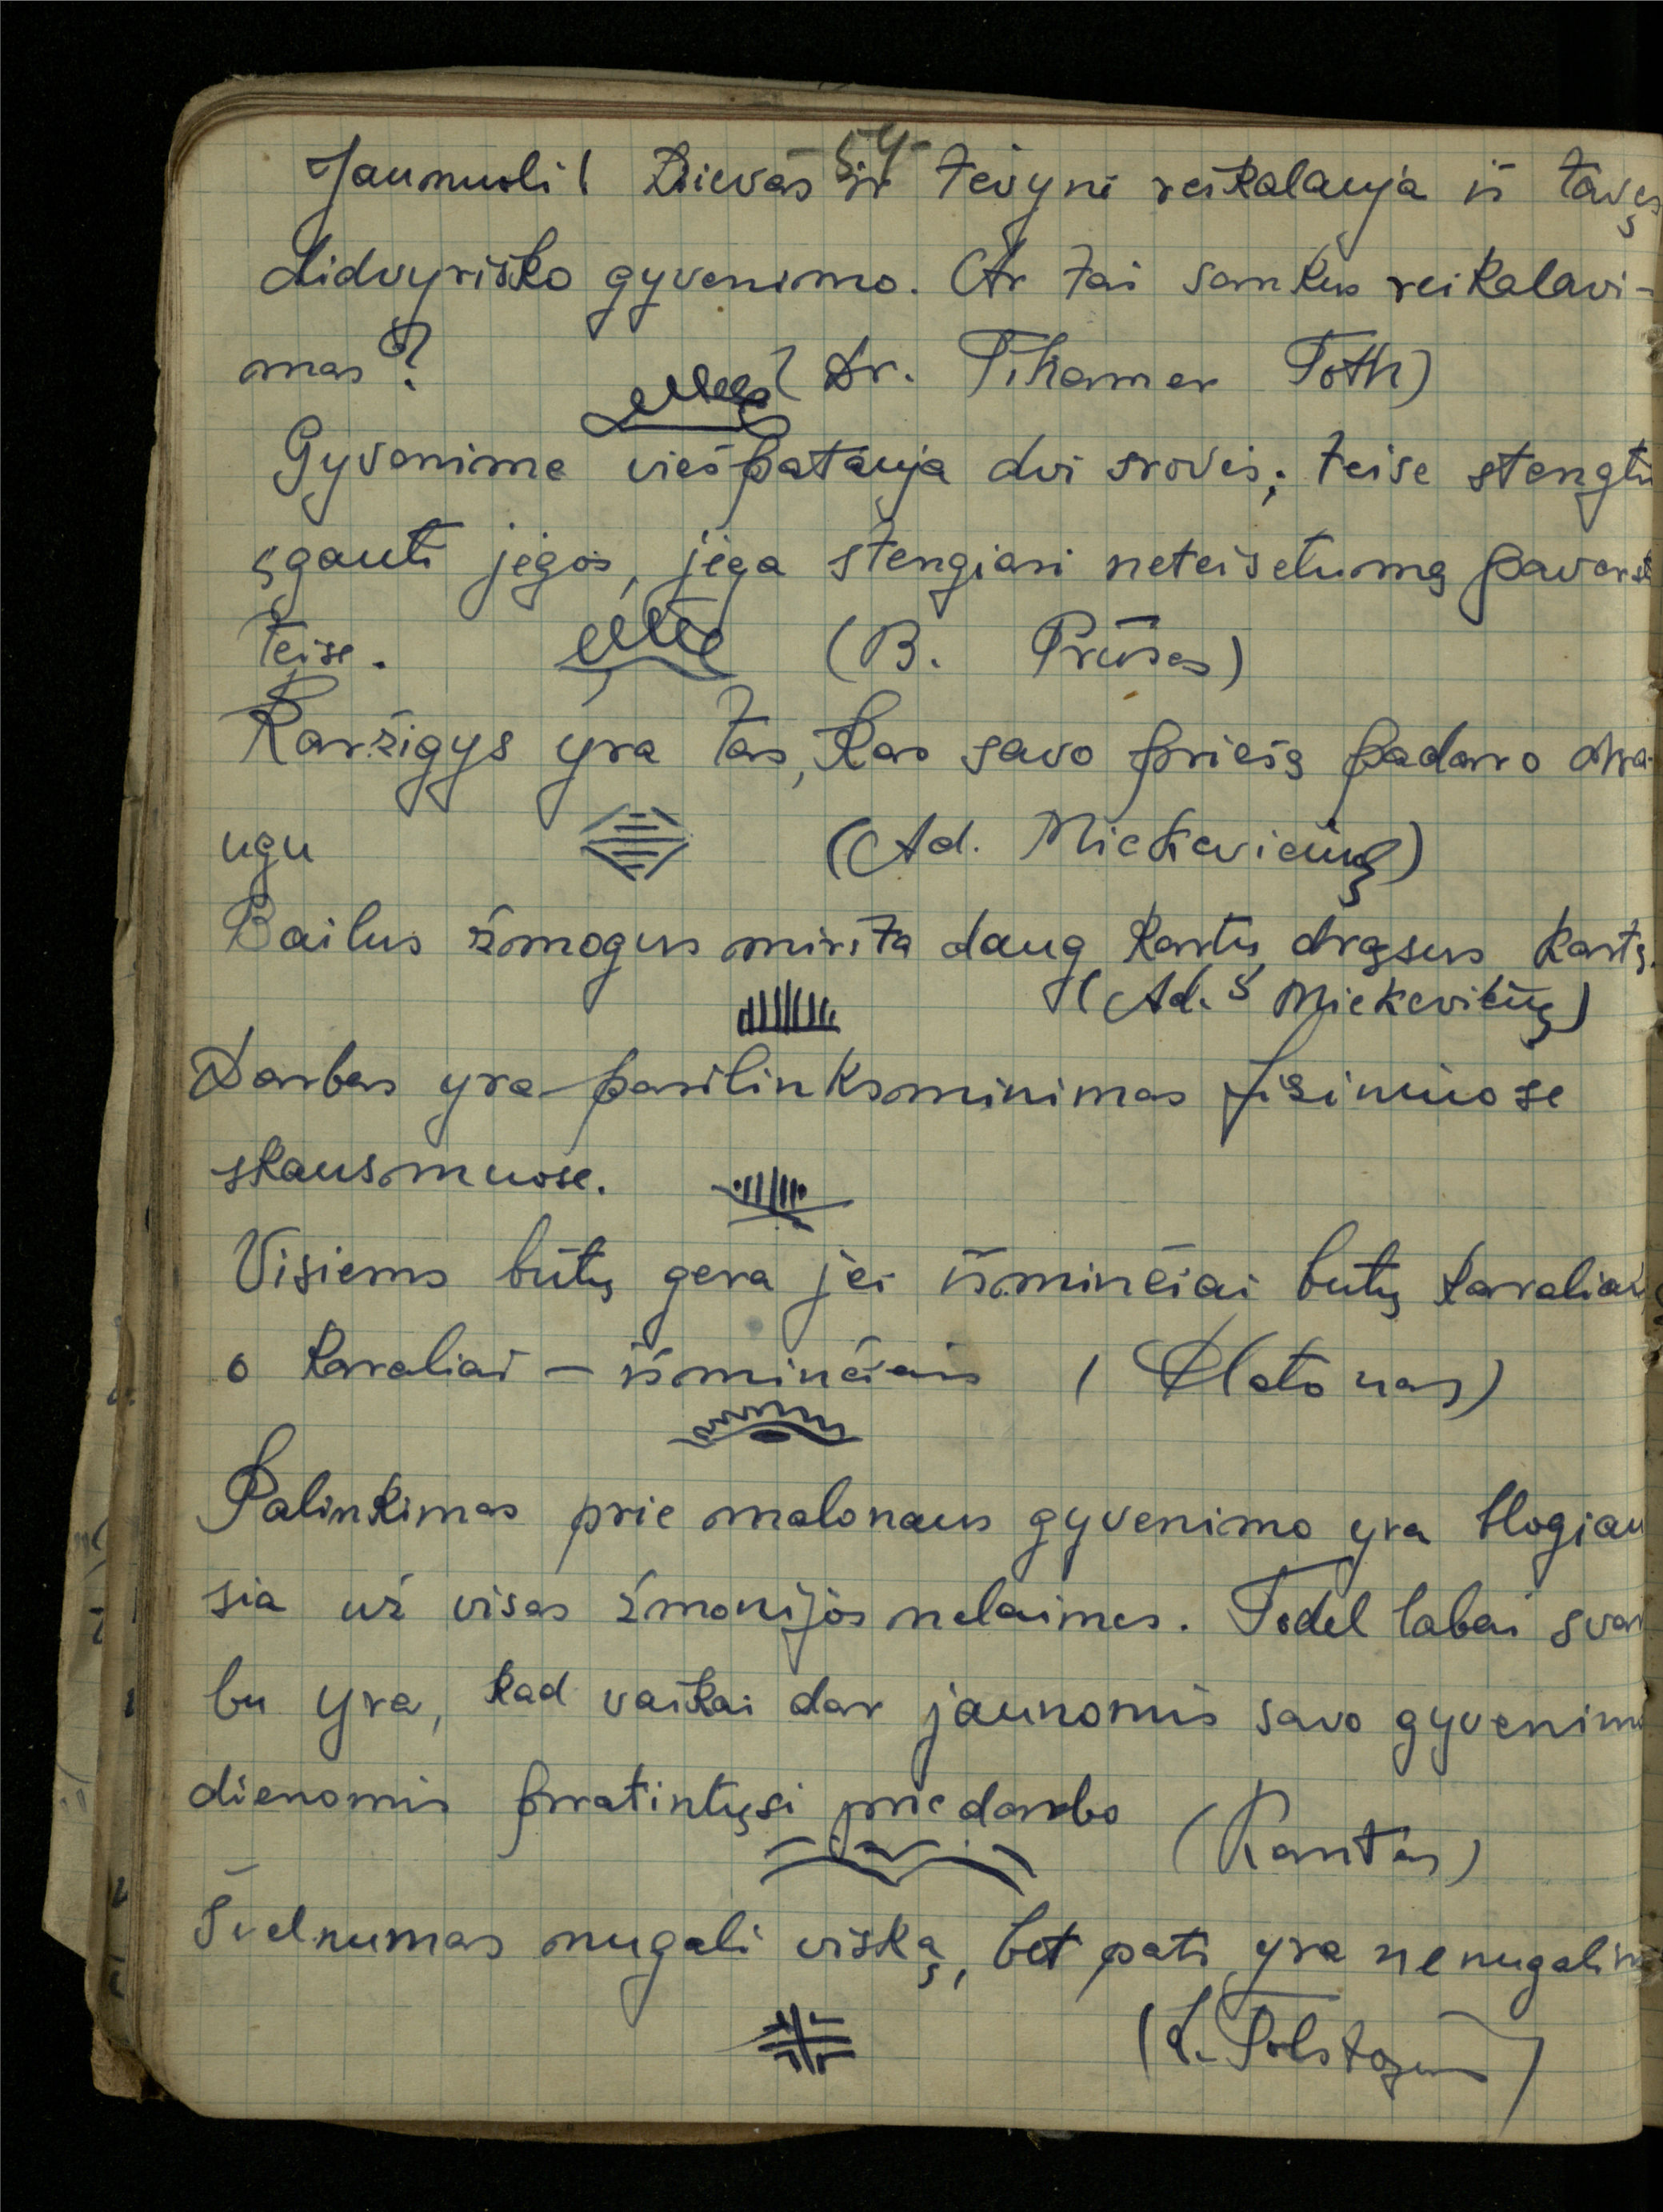 -54-
Jaunuoli! Dievas ir tėvynė reikalauja iš tavęs
didvyriško gyvenimo. Ar tai sunkus reikalavi-
mas? (Dr. Tihamer Toth)
Gyvenime viešpatauja dvi srovės; teisė stengti
įgauti jėgos, jėga stengiasi neteisėtumą paversti
teise. (B. Prūsas)
Karžigys yra tas, kas savo priešą padaro dra-
ugu (Ad. Mickevičius)
Bailus žmogus miršta daug kartų, drąsus kartą.
(Ad. Mickevičius)
Darbas yra pasilinksminimas fiziniuose
skausmuose.
Visiems būtų gera jei išminčiai butų karaliai
o karaliai – išminčiais (Platonas)
Palinkimas prie malonaus gyvenimo yra blogiau
sia už visas žmonijos nelaimes. Todel labai svar
bu yra, kad vaikai dar jaunomis savo gyvenimo
dienomis pratintųsi prie darbo (Kantas)
Švelnumas nugali viską, bet pati yra nenugalima
(L. Tolstojus)